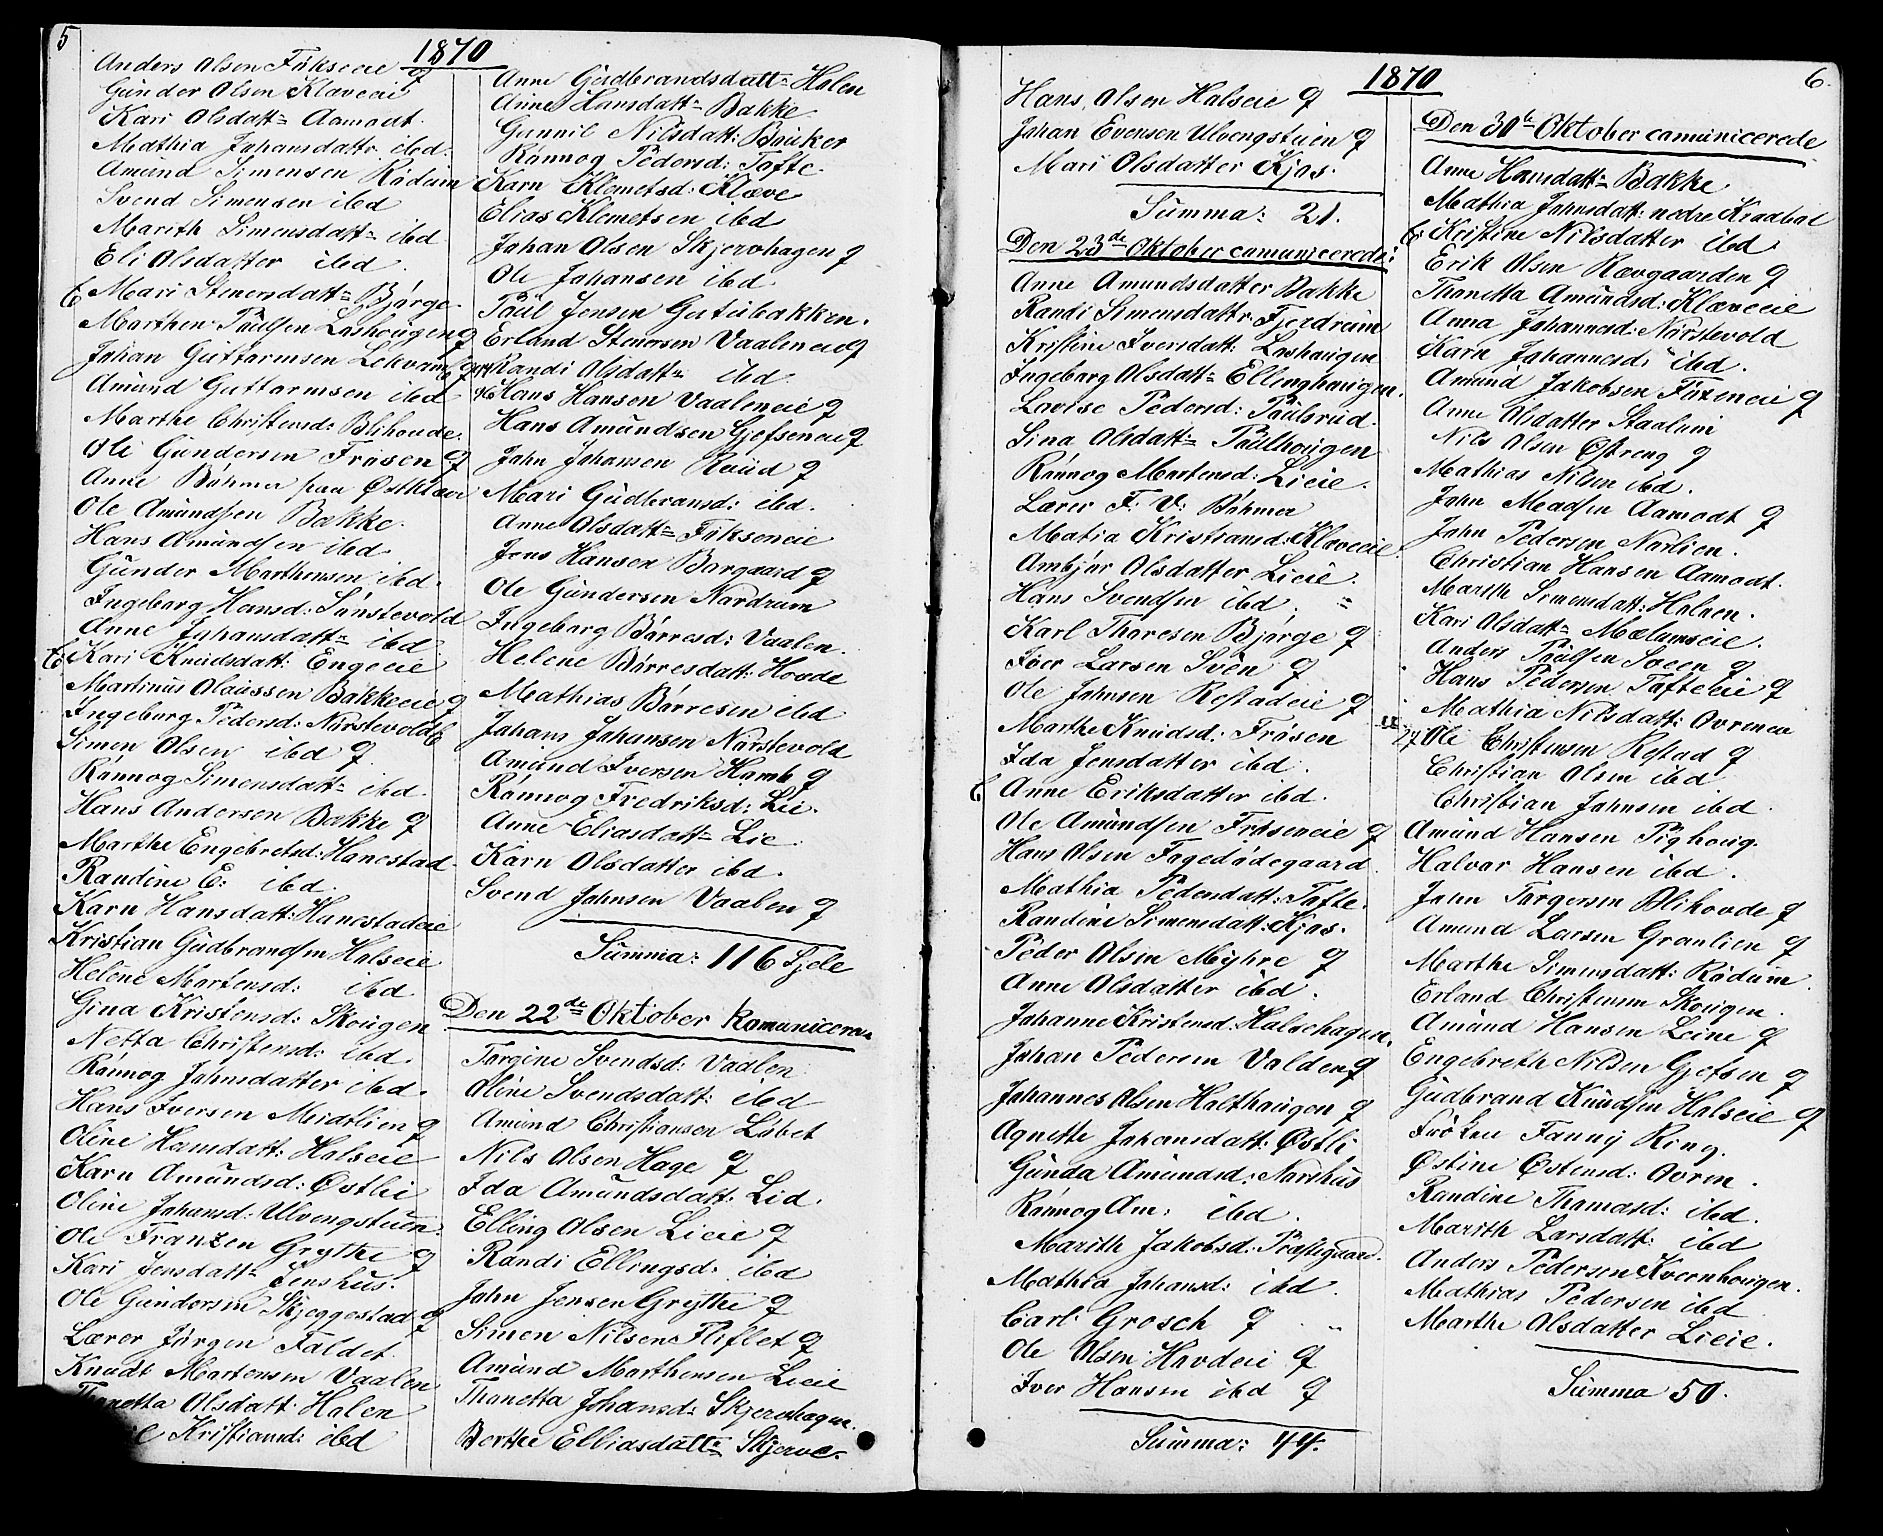 5
1870
Anders Olsen Fükseeie q
Gunder Olsen Klæveeie
Kari Olsdatt= Aamodt.
Mathia Johansdattr. ibd.
Amünd Simensen Rüdüm
Svend Simensen ibd
Marith Simensdatt= ibd
Eli Olsdatter ibd.
Mari Stenersdatt= Bjørge.
Marthen Paülsen Løshoügen q
Johan Güttormsen Lekvam q
Amünd Guttormsen ibd
Marthe Christensd: Blihovde.
Ole Gündersen Frøsen q
Anne Bøhmer paa Østklæv
Ole Amündsen Bakke.
Hans Amündsen ibd
Günder Marthensen ibd.
Ingeborg Hansd: Sønstevold
Anne Johansdatt= ibd
Kari Knüdsdatt: Engeeie
Martinüs Olaüssen Bakkeeie q
Ingeborg Pedersd: Nørstevold
Simen Olsen ibd q
Rønnog Simensdatt= ibd.
Hans Andersen Bakke q
Marthe Engebretsd: Hanestad
Randine E: ibd.
Karn Hansdatt: Hanestadeie
Kristian Güdbrandsen Halseie
Helene Martensd: ibd
Gina Kristensd: Skoügen
Netta Christensd: ibd.
Rønnog Johnsdatter ibd.
Hans Iversen Midtlien q
Oline Hansdatt: Halseie
Karn Amündsd: Østlie
Oline Johansd: Ulvengstüen.
Ole Franzen Grythe q
Kari Jensdatt= Jenshüs.
Ole Gündersen Skjeggestad q
Lærer Jørgen Faldet
Knüdt Martensen Vaalen
Thonetta Olsdatt: Holen
Kristiansd: ibd
Anne Güdbrandsdatt= Holen
Anne Hansdatt= Bakke
Gunnil Nilsdatt: Brüker
Rønnog Pedersd: Tofte
Karn Klemetsd: Klæve
Elias Klemetsen ibd
Johan Olsen Skjervhagen q
Ole Johansen ibd.
Paül Jensen Gutübakken.
Erland Stenersen Vaaleneie q
Randi Olsdatt= ibd
Hans Hansen Vaaleneie q
Hans Amündsen Gjefseneie q
John Johansen Rüüd q
Mari Güdbransd: ibd.
Anne Olsdatt= Füksoneie
Jens Hansen Borgaard q
Ole Gündersen Nordrum
Ingeborg Børresd: Vaalen.
Helene Børresdatt: Hovde
Mathias Børresen ibd
Johans Johansen Nørstevold
Amünd Iversen Hamb q
Rønnog Fredriksd: Lie.
Anne Eliasdatt= Lie.
Karn Olsdatter ibd.
Svend Johnsen Vaalen q
Sümma: 116 Sjele
Den 22de Oktober Komunicera
Torgine Svendsd: Vaalen
Oline Svendsdatt: ibd
Amünd Christiansen Løbet
Nils Olsen Hage q
Ida Amündsdatt: Lid.
Elling Olsen Lieie q
Randi Ellingsd: ibd
John Jensen Grÿthe q
Simen Nilsen Fliflet q
Amünd Marthensen Lieie
Thonetta Johansd: Skjervhagen.
Berthe Elliasdatt= Skjerve.
1870
6.
Hans Olsen Halseie q
Johan Evensen Ulvengstüen q
Mari Olsdatter Kjos.
Sümma: 21.
Den 23de Oktober comunicerede:
Anne Amundsdatter Bakke
Randi Simensdattr. Fjerdrüm
Kristine Iversdatt: Løshaugen
Ingeborg Olsdatt= Ellinghaügen.
Lovise Pedersd: Paülsrüd.
Sina Olsdatt= Paülhoügen
Rønnog Martensd: Lieie.
Lærer F. V. Bøhmer
Matia Kristiansd: Klæveeie
Ambjør Olsdatter Lieie.
Hans Svendsen ibd. =
Karl Thoresen Bjørge q
Iver Larsen Svéen q
Ole Johnsen Rostadeie q
Marthe Knüdsd: Frøsen
Ida Jensdatter ibd.
Anne Eriksdatter ibd.
Ole Amündsen Frøseneie q
Hans Olsen Fagedødegaard
Mathia Pedersdatt: Tofte.
Randine Simensdatt: Kjos.
Peder Olsen Myhre q
Anne Olsdatter ibd.
Johanne Kristensd: Halsehagen.
Johan Pedersen Volden q
Johannes Olsen Holthaügen q
Agnethe Johansdatt: Østli
Günda Amündsd: Nordhüs
Rønnog Am: ibd.
Marith Jakobsd: Præstegaard.
Mathia Johansd: ibd.
Carl Grosch q
Ole Olsen Hovdeie q
Iver Hansen ibd q
Sümma: 44.
Den 30te Oktober comünicerede
Anne Hansdatt= Bakke
Mathia Johnsdatt: nedre Kraabøl
Kristine Nilsdatter ibd
Erik Olsen Rævgaarden q
Thonetta Amündsd: Klæveeie
Anna Johannesd: Nørstevold
Karn Johannesd: ibd.
Amünd Jakobsen Foxeneie q
Anne Olsdatter Staalüm
Nils Olsen Østreng q
Mathias Nilsen ibd.
John Meadsen Aamodt q
John Pedersen Norlien.
Christian Hansen Aamodt.
Marith Simensdatt: Holmen.
Kari Olsdatt= Mælumseie.
Anders Paülsen Sveen q
Hans Pedersen Tofteeie q
Mathia Nilsdatt: Ovreneie
Ole Christensen Rostad q
Christian Olsen ibd
Christian Johnsen ibd.
Amünd Hansen Pighoüg.
Halvor Hansen ibd.
John Torgersen Blihovde q
Amund Larsen Granlien q
Marthe Simensdatt: Rüdüm.
Erland Christensen Skoügen.
Amünd Hansen Line q
Engebreth Nilsen Gjefsen q
Güdbrand Knüdsen Halseie q
Frøken Fanny Ring.
Østine Østensd: Ovren.
Randine Thomasd: ibd.
Marith Larsdatt: ibd
Anders Pedersen Kvernhoügen.
Mathias Pedersen ibd
Marthe Olsdatter Lieie.
Sümma 50.